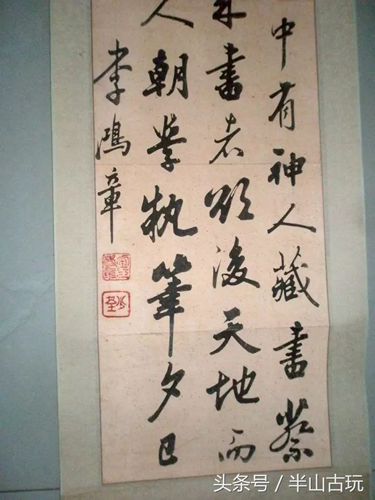 中有神人藏書蔡
書者欲後天地而
人朝學執筆夕已
李鴻章
头条号／半山古玩